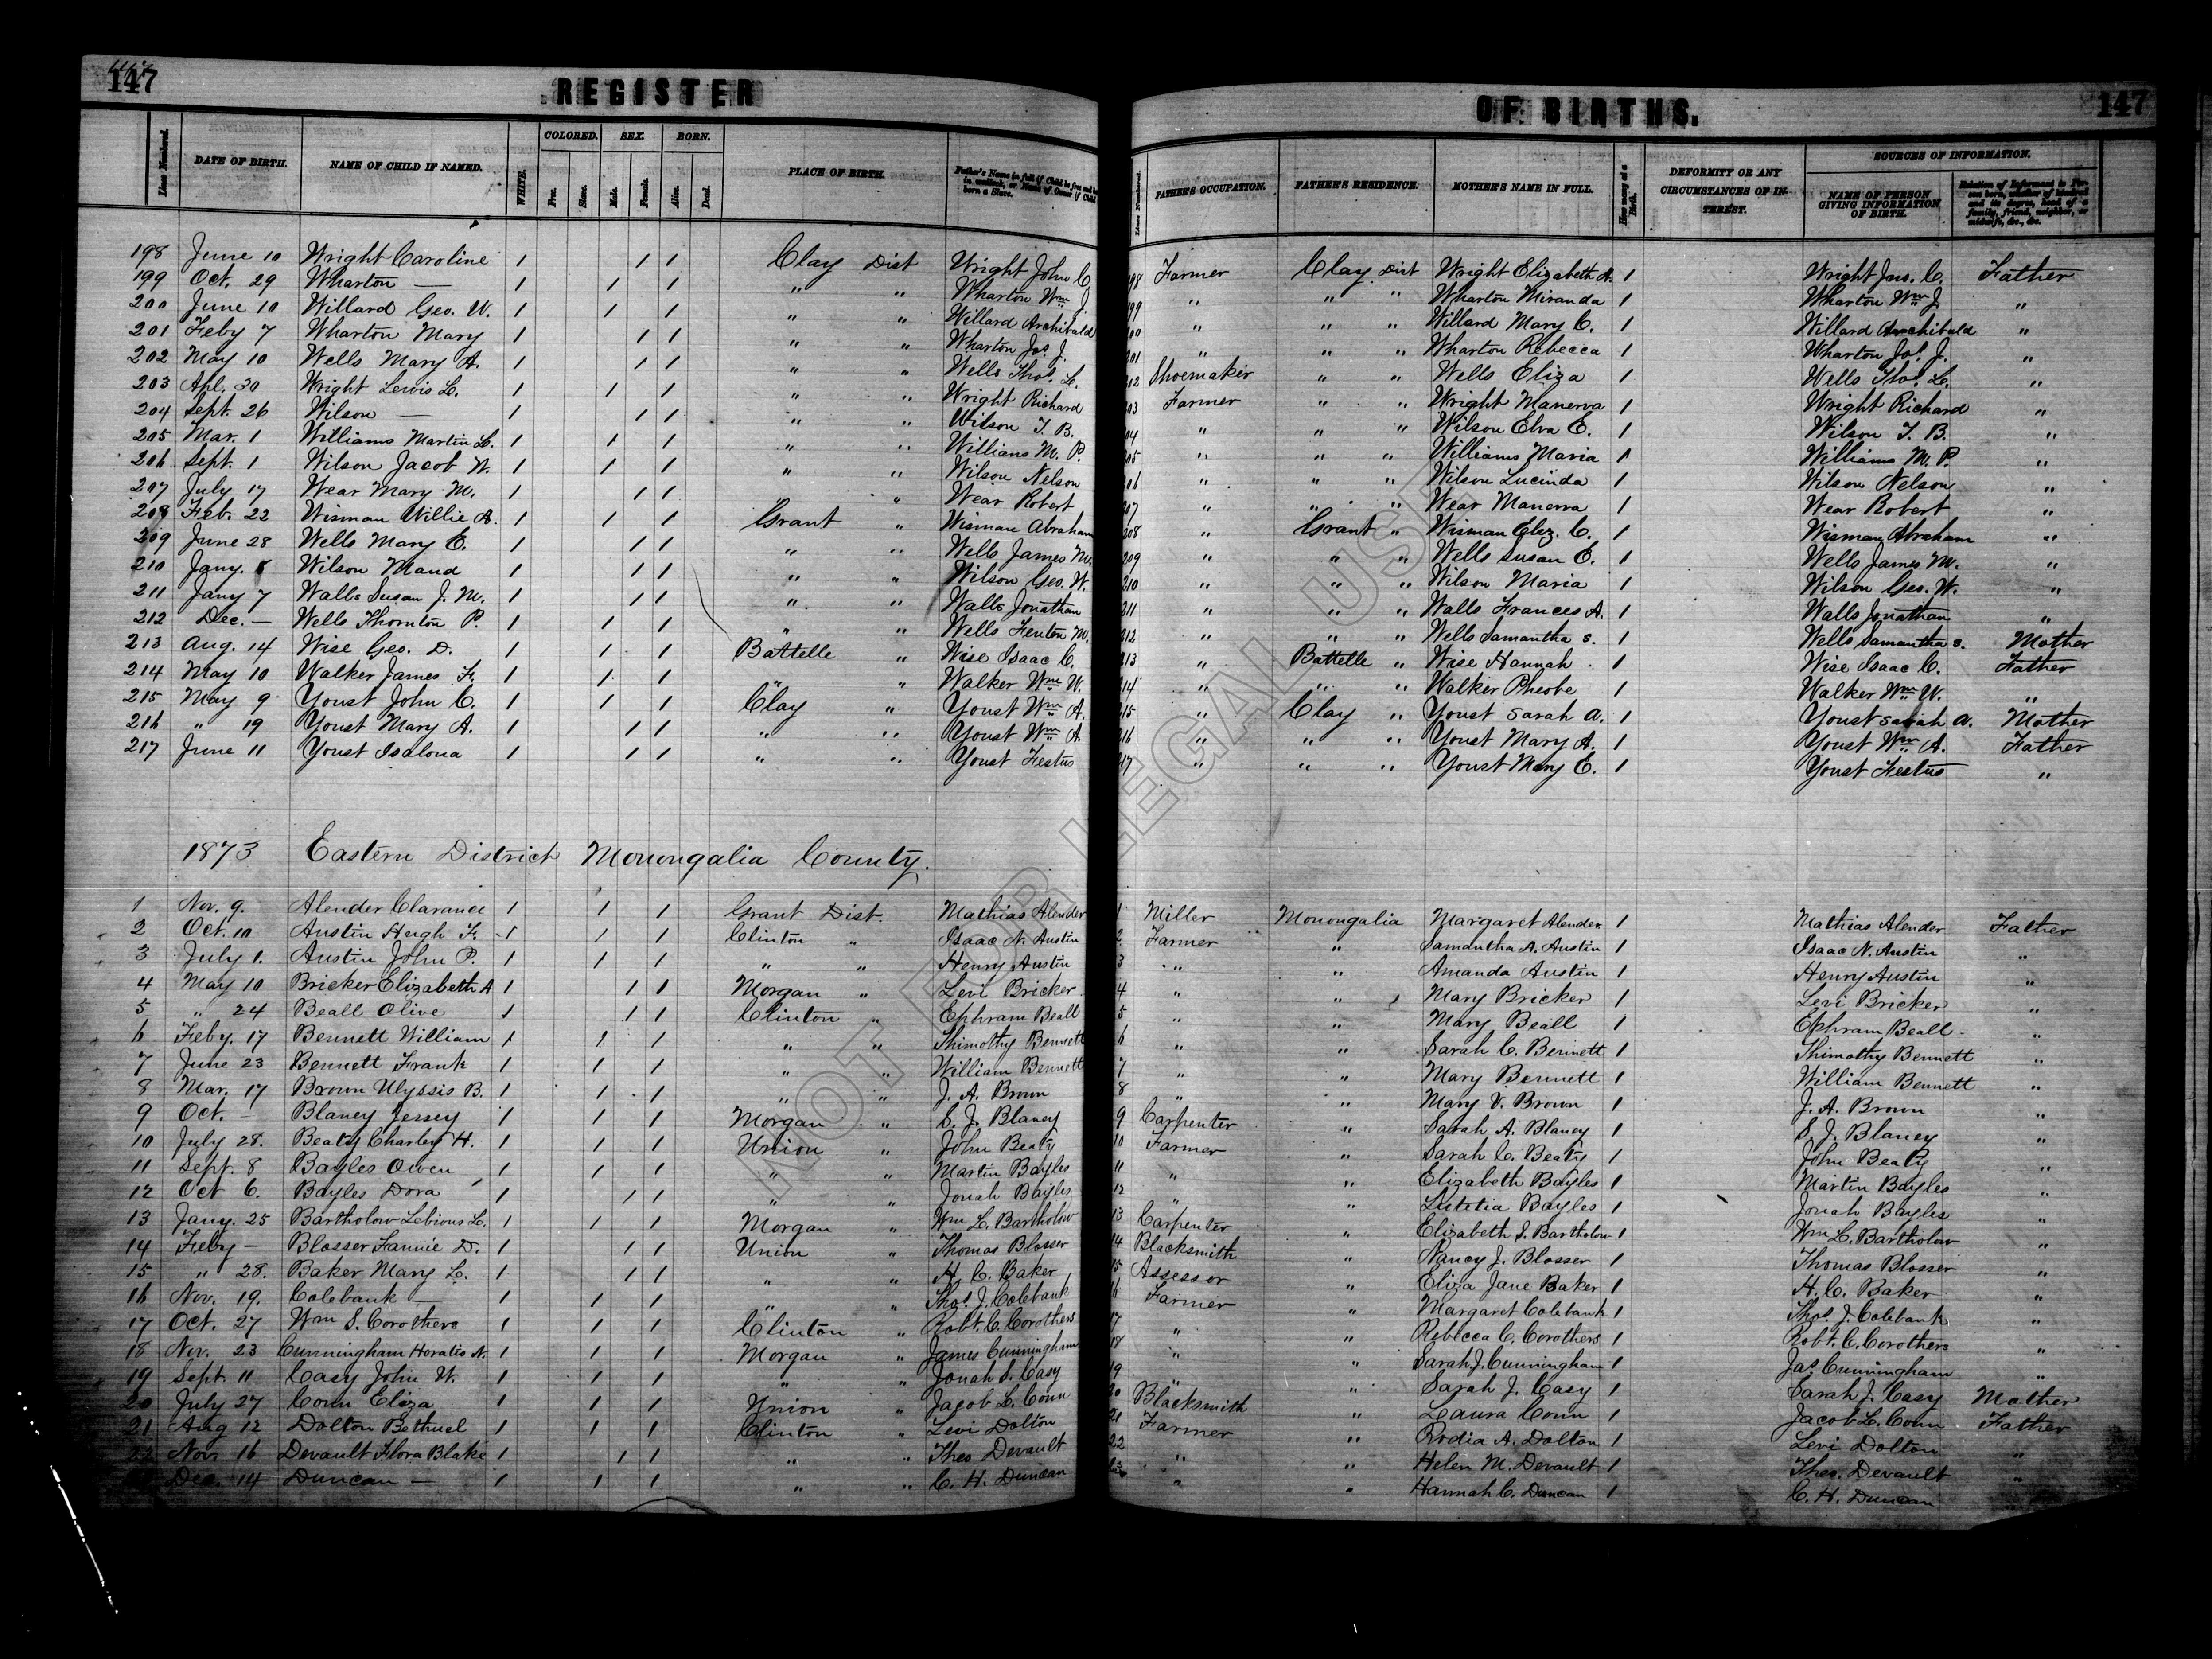 147 REGISTER OF BIRTHS. 147
Lines Numbered. DATE OF BIRTH. NAME OF CHILD IF NAMED. WHITE. COLORED. Free. Slave. SEX. Male. Female. BORN. Alive. Dead. PLACE OF BIRTH. Father's Name in full if Child is free and born in wedlock, or Name of Owner if Child born a Slave. Lines Numbered. FATHER'S OCCUPATION. FATHER'S RESIDENCE. MOTHER'S NAME IN FULL. How many at a Birth. DEFORMITY OR ANY CIRCUMSTANCES OF INTEREST. SOURCES OF INFORMATION. NAME OF PERSON GIVING INFORMATION OF BIRTH. Relation of Informant to Person born, whether of kindred and its degree, head of a family, friend, neighbor, or midwife, &c., &c.
198 June 10 Wright Caroline 1 1 1 Clay Dist Wright John C. 198 Farmer Clay Dist Wright Elizabeth A. 1 Wright Jno. C. Father
199 Oct. 29 Wharton — 1 1 1 " " Wharton Wm J. 199 " " " Wharton Miranda 1 Wharton Wm J. "
200 June 10 Willard Geo. W. 1 1 1 " " Willard Archibald 200 " " " Willard Mary C. 1 Willard Archibald "
201 Feby 7 Wharton Mary 1 1 1 " " Wharton Jas. J. 201 " " " Wharton Rebecca 1 Wharton Jas. J. "
202 May 10 Wells Mary A. 1 1 1 " " Wells Thos. L. 202 Shoemaker " " Wells Eliza 1 Wells Thos. L. "
203 Apl. 30 Wright Lewis L. 1 1 1 " " Wright Richard 203 Farmer " " Wright Manerva 1 Wright Richard "
204 Sept. 26 Wilson — 1 1 1 " " Wilson T. B. 204 " " " Wilson Elva E. 1 Wilson T. B. "
205 Mar. 1 Williams Martin L. 1 1 1 " " Williams M. P. 205 " " " Williams Maria 1 Williams M. P. "
206 Sept. 1 Wilson Jacob W. 1 1 1 " " Wilson Nelson 206 " " " Wilson Lucinda 1 Wilson Nelson "
207 July 17 Wear Mary M. 1 1 1 " Wear Robert 207 " " " Wear Manerva 1 Wear Robert "
208 Feb. 22 Wisman Willie A. 1 1 1 Grant " Wisman Abraham 208 " Grant " Wisman Eliz. C. 1 Wisman Abraham "
209 June 28 Wells Mary E. 1 1 1 " " Wells James M. 209 " " " Wells Susan E. 1 Wells James M. "
210 Jany. 8 Wilson Maud 1 1 1 " " Wilson Geo. W. 210 " " " Wilson Maria 1 Wilson Geo. W. "
211 Jany 7 Walls Susan J. M. 1 1 1 " " Walls Jonathan 211 " " " Walls Frances A. 1 Walls Jonathan "
212 Dec. — Wells Thornton P. 1 1 1 " " Wells Fenton M. 212 " " " Wells Samantha S. 1 Wells Samantha S. Mother
213 Aug. 14 Wise Geo. D. 1 1 1 Battelle " Wise Isaac C. 213 " Battelle " Wise Hannah 1 Wise Isaac C. Father
214 May 10 Walker James F. 1 1 1 " " Walker Wm W. 214 " " " Walker Pheobe 1 Walker Wm W. "
215 May 9 Youst John C. 1 1 1 Clay " Youst Wm A. 215 " Clay " Youst Sarah A. 1 Youst Sarah A. Mother
216 " 19 Youst Mary A. 1 1 1 " " Youst Wm A. 216 " " " Youst Mary A. 1 Youst Wm A. Father
217 June 11 Youst Isalona 1 1 1 " " Youst Festus 217 " " " Youst Mary E. 1 Youst Festus "
1873 Eastern District Monongalia County.
1 Nov. 9. Alender Clarance 1 1 1 Grant Dist. Mathias Alender 1 Miller Monongalia Margaret Alender 1 Mathias Alender Father
2 Oct. 10 Austin Hugh F. 1 1 1 Clinton " Isaac N. Austin 2 Farmer " Samantha A. Austin 1 Isaac N. Austin "
3 July 1. Austin John P. 1 1 1 " " Henry Austin 3 " " Amanda Austin 1 Henry Austin "
4 May 10 Bricker Elizabeth A 1 1 1 Morgan " Levi Bricker 4 " " Mary Bricker 1 Levi Bricker "
5 " 24 Beall Olive 1 1 1 Clinton " Ephram Beall 5 " " Mary Beall 1 Ephram Beall "
6 Feby. 17 Bennett William 1 1 1 " " Thimothy Bennett 6 " " Sarah C. Bennett 1 Thimothy Bennett "
7 June 23 Bennett Frank 1 1 1 " " William Bennett 7 " " Mary Bennett 1 William Bennett "
8 Mar. 17 Brown Ulyssis B. 1 1 1 " " J. A. Brown 8 " " Mary V. Brown 1 J. A. Brown "
9 Oct. — Blaney Jessey 1 1 1 Morgan " S. J. Blaney 9 Carpenter " Sarah A. Blaney 1 S. J. Blaney "
10 July 28. Beaty Charley H. 1 1 1 Union " John Beaty 10 Farmer " Sarah C. Beaty 1 John Beaty "
11 Sept. 8 Bayles Owen 1 1 1 " " Martin Bayles 11 " " Elizabeth Bayles 1 Martin Bayles "
12 Oct 6. Bayles Dora 1 1 1 " " Jonah Bayles 12 " " Lutetia Bayles 1 Jonah Bayles "
13 Jany. 25 Bartholow Lebious L. 1 1 1 Morgan " Wm L. Bartholow 13 Carpenter " Elizabeth S. Bartholow 1 Wm L. Bartholow "
14 Feby — Blosser Fannie D. 1 1 1 Union " Thomas Blosser 14 Blacksmith " Nancy J. Blosser 1 Thomas Blosser "
15 " 28. Baker Mary L. 1 1 1 " " H. C. Baker 15 Assessor " Eliza Jane Baker 1 H. C. Baker "
16 Nov. 19. Colebank — 1 1 1 " " Thos. J. Colebank 16 Farmer " Margaret Colebank 1 Thos. J. Colebank "
17 Oct. 27 Wm S. Corothers 1 1 1 Clinton " Robt. C. Corothers 17 " " Rebecca C. Corothers 1 Robt. C. Corothers "
18 Nov. 23 Cunningham Horatio N. 1 1 1 Morgan " James Cunningham 18 " " Sarah J. Cunningham 1 Jas. Cunningham "
19 Sept. 11 Casy John W. 1 1 1 " " Jonah S. Casy 19 " " Sarah J. Casy 1 Sarah J. Casy Mother
20 July 27 Conn Eliza 1 1 1 Union " Jacob L. Conn 20 Blacksmith " Laura Conn 1 Jacob L. Conn Father
21 Aug 12 Dolton Bethuel 1 1 1 Clinton " Levi Dolton 21 Farmer " Rodia A. Dolton 1 Levi Dolton "
22 Nov. 16 Devault Flora Blake 1 1 1 " " Theo Devault 22 " " Helen M. Devault 1 Theo. Devault "
Dec. 14 Duncan — 1 1 1 " " C. H. Duncan " " Hannah C. Duncan 1 C. H. Duncan
NOT FOR LEGAL USE